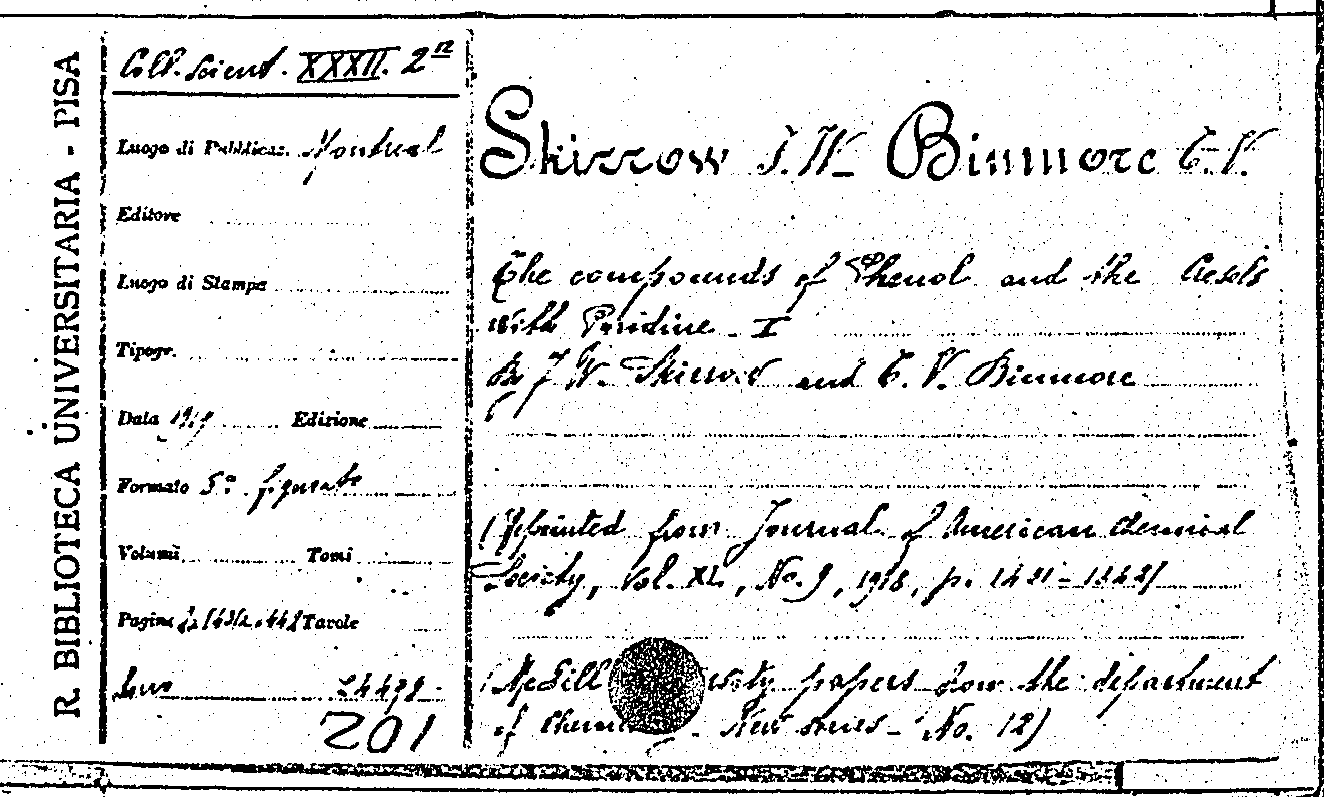 R. BIBLIOTECA UNIVERSITARIA - PISA
Coll. Scient. XXXII. 2
Luogo di Pubblicaz. Montreal
Editore
Luogo di Stampa
Tipogr.
Data 1919 Edizione
Formato figurato
Volumi Tomi
Pagine Tavole
201
Skirrow F. W. Binmore T. V.
The compounds of Phenol and the Cresols
with Pyridine - I
By F. W. Skirrow and T. V. Binmore
(Reprinted from Journal of American Chemical
Society, Vol. XL, No. 9, 1918, p.
(McGill papers from the department
of New series - No. 12)